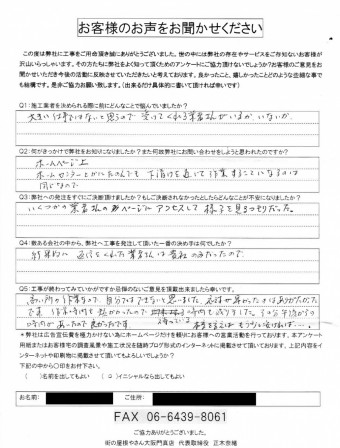 お客様のお声をお聞かせください
この度は弊社に工事をご用命頂き誠にありがとうございました。世の中には弊社の存在やサービスをご存知ないお客様が
沢山いらっしゃいます。その方たちに弊社をよく知って頂くためのアンケートにご協力頂けないでしょうか?お客様のご意見をお
聞かせいただき今後の活動に反映させていただきたいと考えております。良かったこと、嬉しかったことどのような些細な事で
も結構です。是非ご協力お願い致します。(出来るだけ具体的に書いて頂ければ幸いです)
Q1:施工業者を決められる際に前にどんなことで悩んでいましたか?
大きい仕事ではないと思うので 受けてくれる業者さんがいるか、いないか、
Q2:何がきっかけで弊社をお知りになりましたか?また何故弊社にお問い合わせをしようと思われたのですか?
ホームページ上
ホームセンターとかにたのんでも 下請けを通して作業することになるのは
同じなので
Q3:弊社への発注をすぐにご決断頂けましたか?もしご決断されなかったとしたらどんなことが不安になりましたか?
いくつかの業者さんのページにアクセスして様子を見るつもりだった。
Q4:数ある会社の中から、弊社へ工事を発注して頂いた一番の決め手は何でしたか?
返信をくれた業者さんは貴社のみだったので、
Q5:工事が終わってみていかがですか忌憚のないご意見を頂戴出来ましたら幸いです。
高い所の作業なので、自分ではできないと思いました。
時間があったので良かったです
※弊社は広告宣伝費を極力かけない為にホームページだけを頼りにお客様への営業活動を行っております。本アンケート
用紙またはお客様宅の調査風景や施工状況を随時ブログ形式のインターネットに掲載させて頂いております。上記内容をイ
ンターネットや印刷物に掲載させて頂いてもよろしいでしょうか?
下記の中から○印をお付け下さい。
( )名前を出してもよい (○)イニシャルなら出してもよい
お名前: ご住所:
FAX 06-6439-8061
ご協力ありがとうございました。
街の屋根やさん大阪門真店 代表取締役 正木奈緒